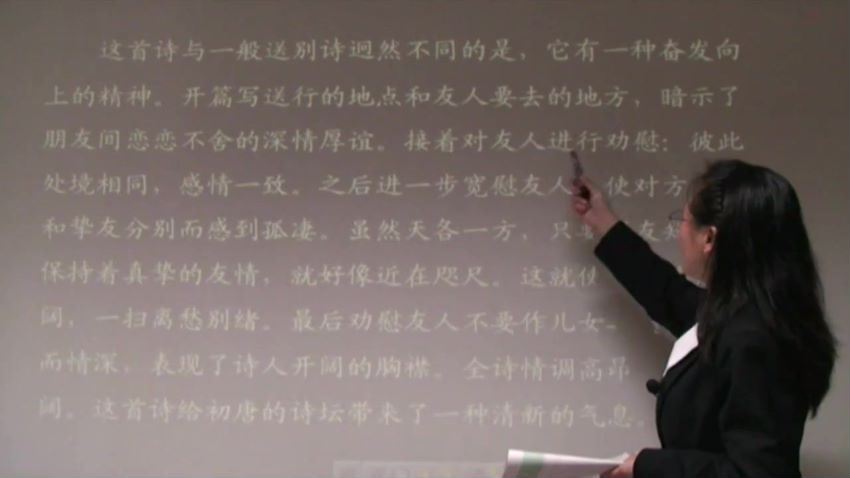 这首诗与一般送别诗迥然不同的是，它有一种奋发向
上的精神。开篇写送行的地点和友人要去的地方，暗示了
朋友间恋恋不舍的深情厚谊。接着对友人进行劝慰：彼此
处境相同，感情一致。之后进一步宽慰友人 使对方
和挚友分别而感到孤凄。虽然天各一方，只 友
保持着真挚的友情，就好像近在咫尺。这就使
阔，一扫离愁别绪。最后劝慰友人不要作儿女
而情深，表现了诗人开阔的胸襟。全诗情调高昂
阔。这首诗给初唐的诗坛带来了一种清新的气息。